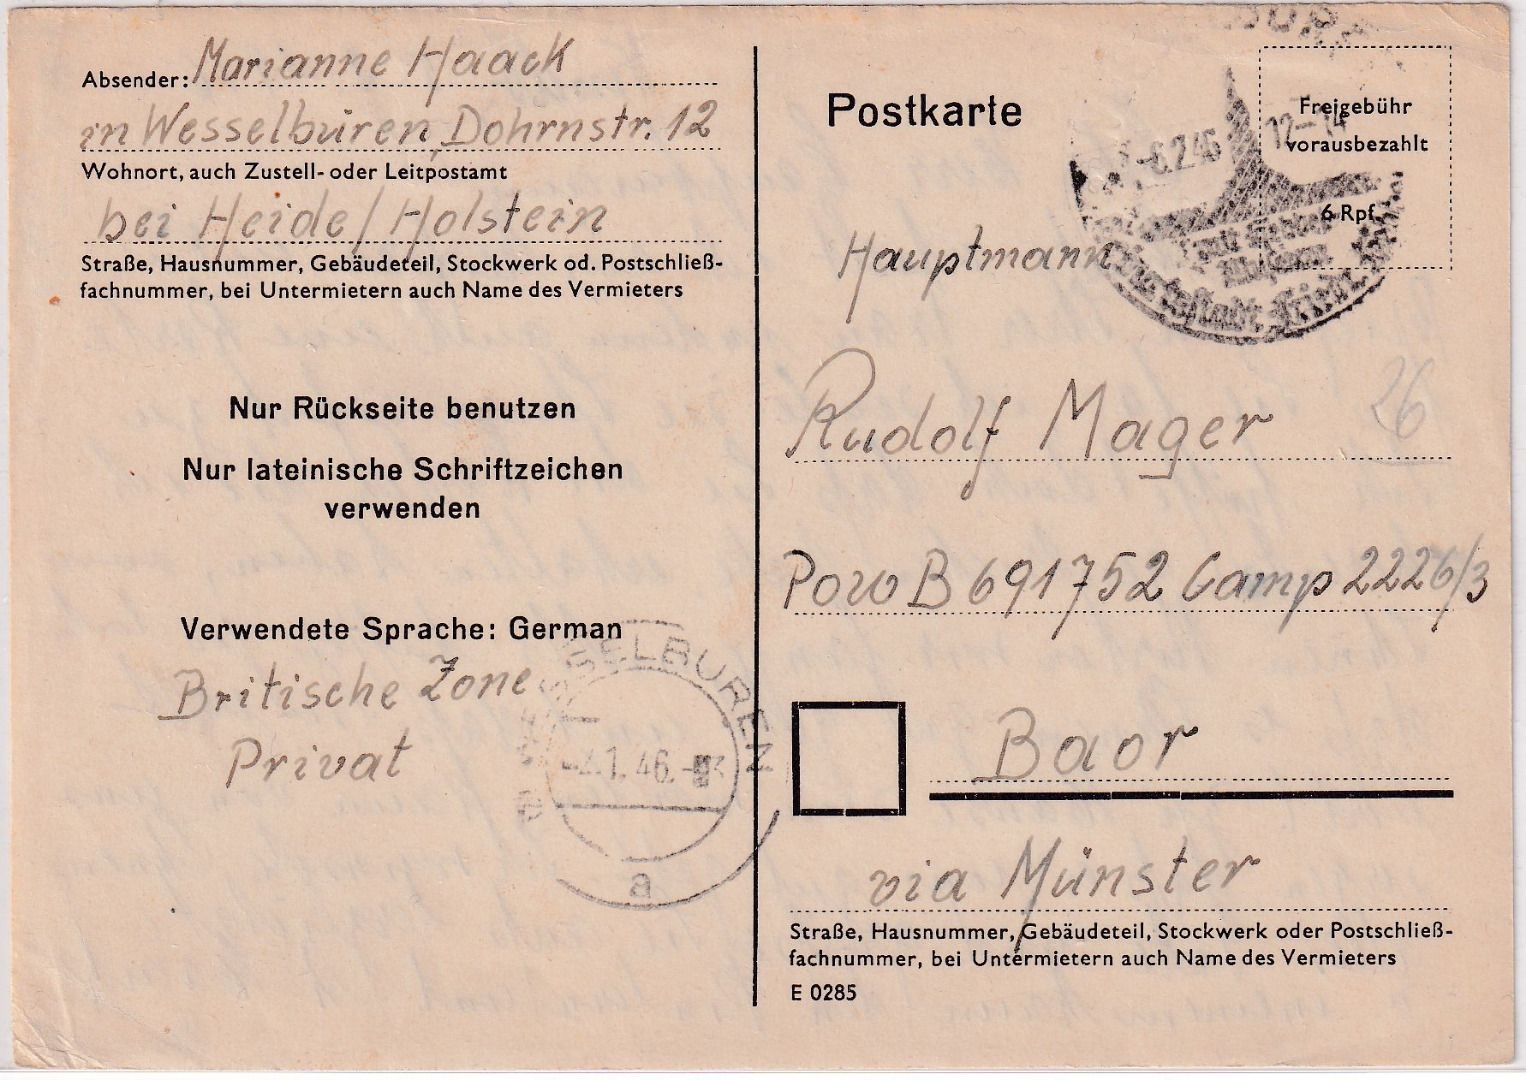 Absender: Marianne Haack
in Wesselburen, Dohrnstr. 12
Wohnort, auch Zustell- oder Leitpostamt
bei Heide/Holstein
Straße, Hausnummer, Gebäudeteil, Stockwerk od. Postschließ-
fachnummer, bei Untermietern auch Name des Vermieters
Nur Rückseite benutzen
Nur lateinische Schriftzeichen
verwenden
Verwendete Sprache: German
Britische Zone
Privat
WESSELBUREN
1.46.
a
Postkarte
Freigebühr
vorausbezahlt
6 Rpf.
-6.2.46 12-14
Hauptmann
Rudolf Mager
26
Pow B 691752 Camp 2226/3
Baor
via Münster
Straße, Hausnummer, Gebäudeteil, Stockwerk oder Postschließ-
fachnummer, bei Untermietern auch Name des Vermieters
E 0285